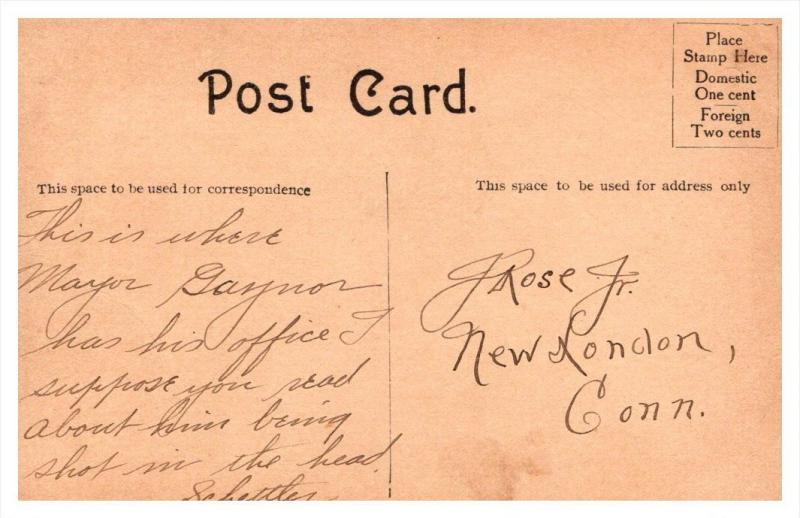 Post Card.
Place
Stamp Here
Domestic
One cent
Foreign
Two cents
This space to be used for correspondence
This is where
Mayor Gaynor
has his office I
suppose you read
about him being
shot in the head.
Schettler
This space to be used for address only
J Rose Jr.
New London,
Conn.